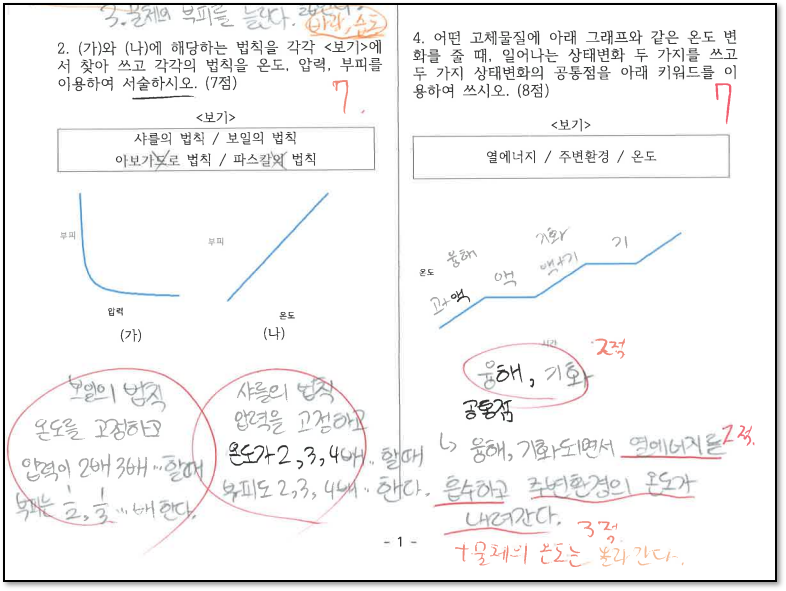 3. 물체의 부피를 늘린다.
바람, 습도
2. (가)와 (나)에 해당하는 법칙을 각각 <보기>에
서 찾아 쓰고 각각의 법칙을 온도, 압력, 부피를
이용하여 서술하시오. (7점)
7
<보기>
샤를의 법칙 / 보일의 법칙
아보가드로 법칙 / 파스칼의 법칙
부피
압력
(가)
부피
온도
(나)
보일의 법칙
온도를 고정하고
압력이 2배 3배... 할때
부피는 1/2, 1/3 ... 배 한다.
샤를의 법칙
압력을 고정하고
온도가 2, 3, 4배.. 할때
부피도 2, 3, 4배.. 한다.
4. 어떤 고체물질에 아래 그래프와 같은 온도 변
화를 줄 때, 일어나는 상태변화 두 가지를 쓰고
두 가지 상태변화의 공통점을 아래 키워드를 이
용하여 쓰시오. (8점)
7
<보기>
열에너지 / 주변환경 / 온도
온도
고+액
융해
액
기화
액+기
기
시간
2점
융해, 기화
공통점
↳ 융해, 기화되면서 열에너지를
2점.
흡수하고 주변환경의 온도가
내려간다.
3점
+물체의 온도는 올라간다.
- 1 -